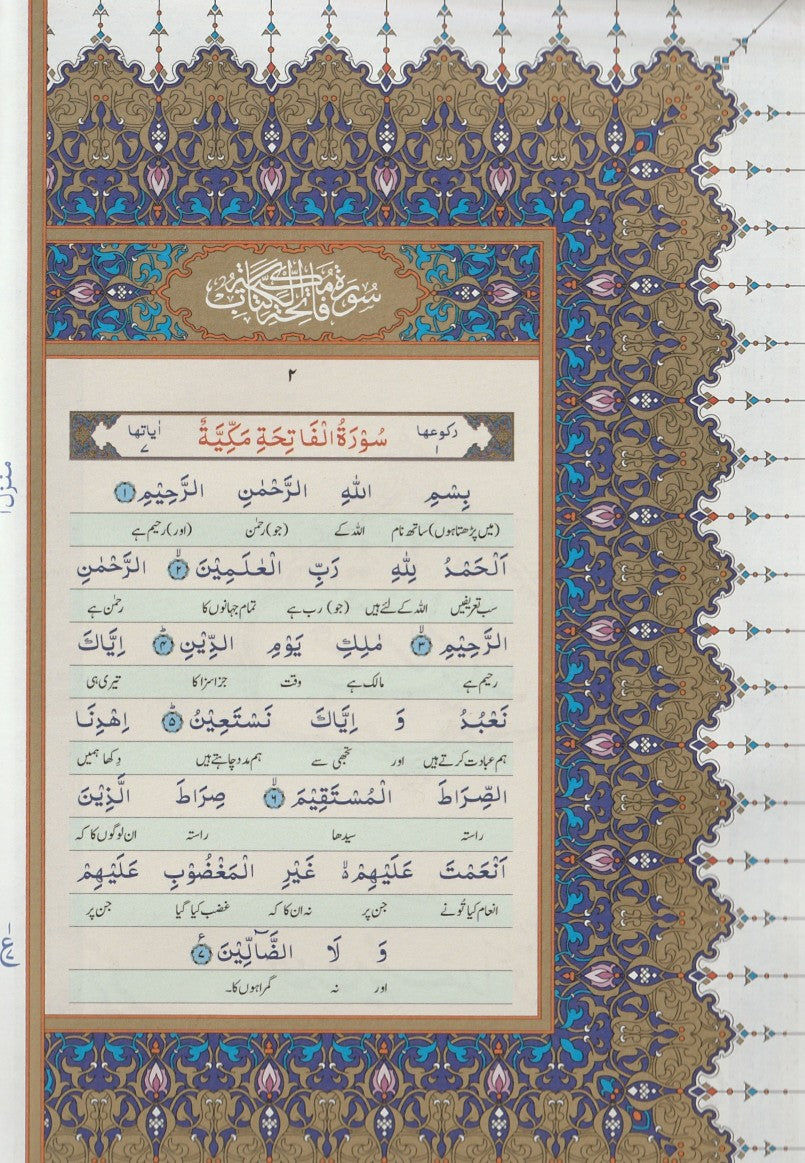 سُوْرَةُ فَاتِحَةِ الْكِتَابِ مَكِّيَّةٌ
۲
رکوعها ۱ سُوْرَةُ الْفَاتِحَةِ مَكِّيَّةٌ اٰیاتها ۷
بِسْمِ اللّٰهِ الرَّحْمٰنِ الرَّحِيْمِ ۱
(میں پڑھتا ہوں) ساتھ نام اللہ کے (جو) رحمٰن (اور) رحیم ہے
اَلْحَمْدُ لِلّٰهِ رَبِّ الْعٰلَمِيْنَ ۙ۲ الرَّحْمٰنِ
سب تعریفیں اللہ کے لئے ہیں (جو) رب ہے تمام جہانوں کا رحمٰن ہے
الرَّحِيْمِ ۙ۳ مٰلِكِ يَوْمِ الدِّيْنِ ؕ۴ اِيَّاكَ
رحیم ہے مالک ہے وقت جزا سزا کا تیری ہی
نَعْبُدُ وَ اِيَّاكَ نَسْتَعِيْنُ ؕ۵ اِهْدِنَا
ہم عبادت کرتے ہیں اور تجھی سے ہم مدد چاہتے ہیں دکھا ہمیں
الصِّرَاطَ الْمُسْتَقِيْمَ ۙ۶ صِرَاطَ الَّذِيْنَ
راستہ سیدھا راستہ ان لوگوں کا کہ
اَنْعَمْتَ عَلَيْهِمْ ۙ۬ غَيْرِ الْمَغْضُوْبِ عَلَيْهِمْ
انعام کیا تُو نے جن پر نہ ان کا کہ غضب کیا گیا جن پر
وَ لَا الضَّآلِّيْنَ ۠۷
اور نہ گمراہوں کا۔
منزل ۱